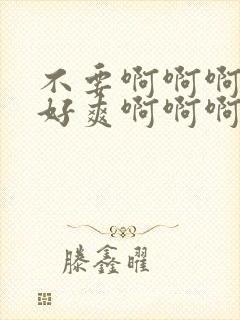 不要啊啊啊
好爽啊啊啊
滕鑫曜